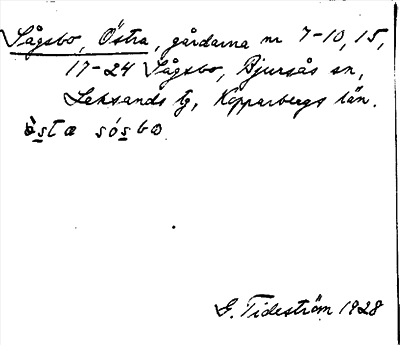 Sågsbo, Östra, gårdarna nr 7-10, 15,
17-24 Sågsbo, Bjursås sn,
Leksands tg, Kopparbergs län.
ὸsta sósbo
G. Tideström 1928